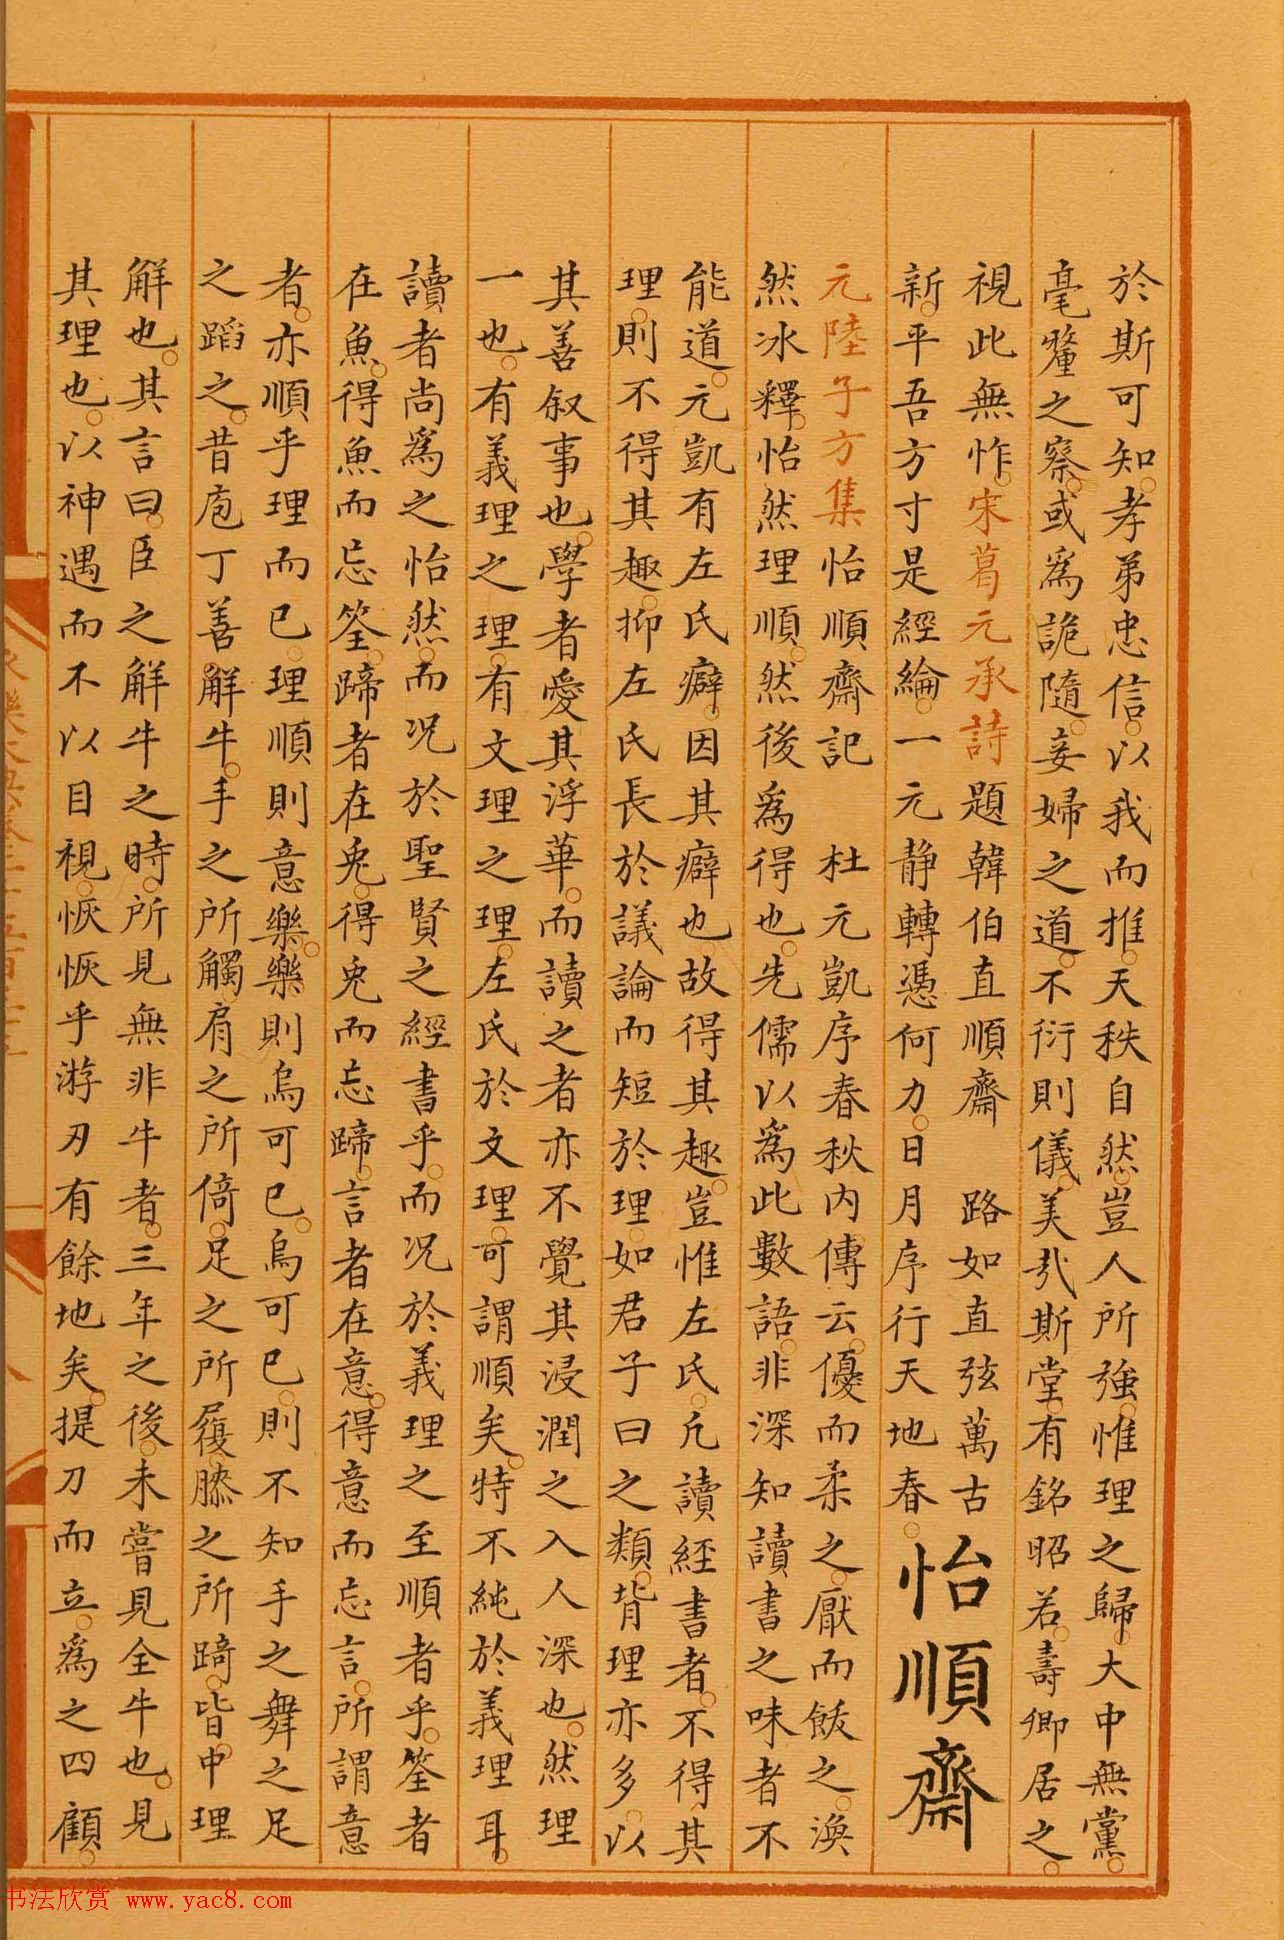 於斯可知孝弟忠信以我而推天秩自然豈人所強惟理之歸大中無黨
毫釐之察或為詭隨妾婦之道不衍則儀美哉斯堂有銘昭若壽卿居之
視此無怍宋葛元承詩題韓伯直順齋 路如直弦萬古
新平吾方寸是經綸一元靜轉憑何力日月序行天地春
怡順齋
元陸子方集怡順齋記 杜元凱序春秋內傳云優而柔之厭而飫之渙
然冰釋怡然理順然後為得也先儒以為此數語非深知讀書之味者不
能道元凱有左氏癖因其癖也故得其趣豈惟左氏凡讀經書者不得其
理則不得其趣抑左氏長於議論而短於理如君子曰之類背理亦多以
其善叙事也學者愛其浮華而讀之者亦不覺其浸潤之入人深也然理
一也有義理之理有文理之理左氏於文理可謂順矣特不純於義理耳
讀者尚為之怡然而况於聖賢之經書乎而况於義理之至順者乎筌者
在魚得魚而忘筌蹄者在兎得兎而忘蹄言者在意得意而忘言所謂意
者亦順乎理而已理順則意樂樂則烏可已烏可已則不知手之舞之足
之蹈之昔庖丁善解牛手之所觸肩之所倚足之所履膝之所踦皆中理
解也其言曰臣之解牛之時所見無非牛者三年之後未嘗見全牛也見
其理也以神遇而不以目視恢恢乎游刃有餘地矣提刀而立為之四顧
书法欣赏 www.yac8.com